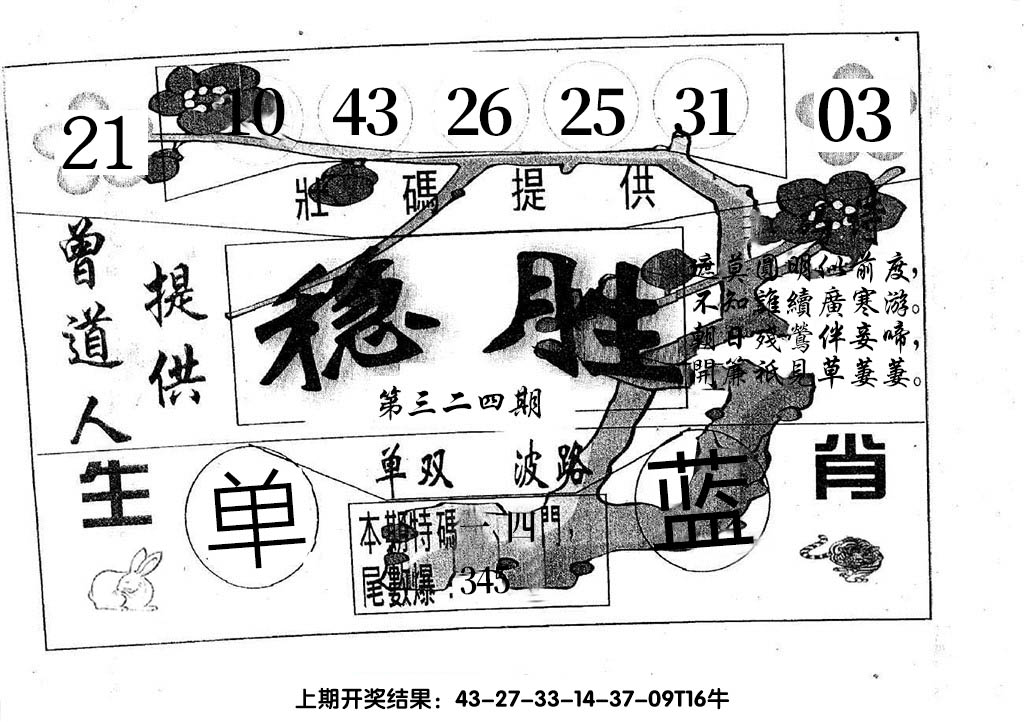 21 10 43 26 25 31 03
壯碼提供
特
曾道人
提供
稳胜
第三二四期
遮莫圓明似前度，
不知誰續廣寒游。
朝日殘鶯伴妾啼，
開簾祇見草萋萋。
单双 波路
生 单 蓝 肖
本期特碼一、四門，
尾數爆：345
上期开奖结果：43-27-33-14-37-09T16牛